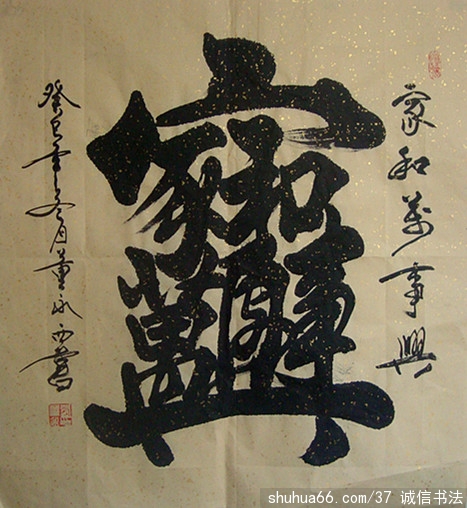 家和萬事興
癸巳年冬月董永書
shuhua66.com/37 诚信书法